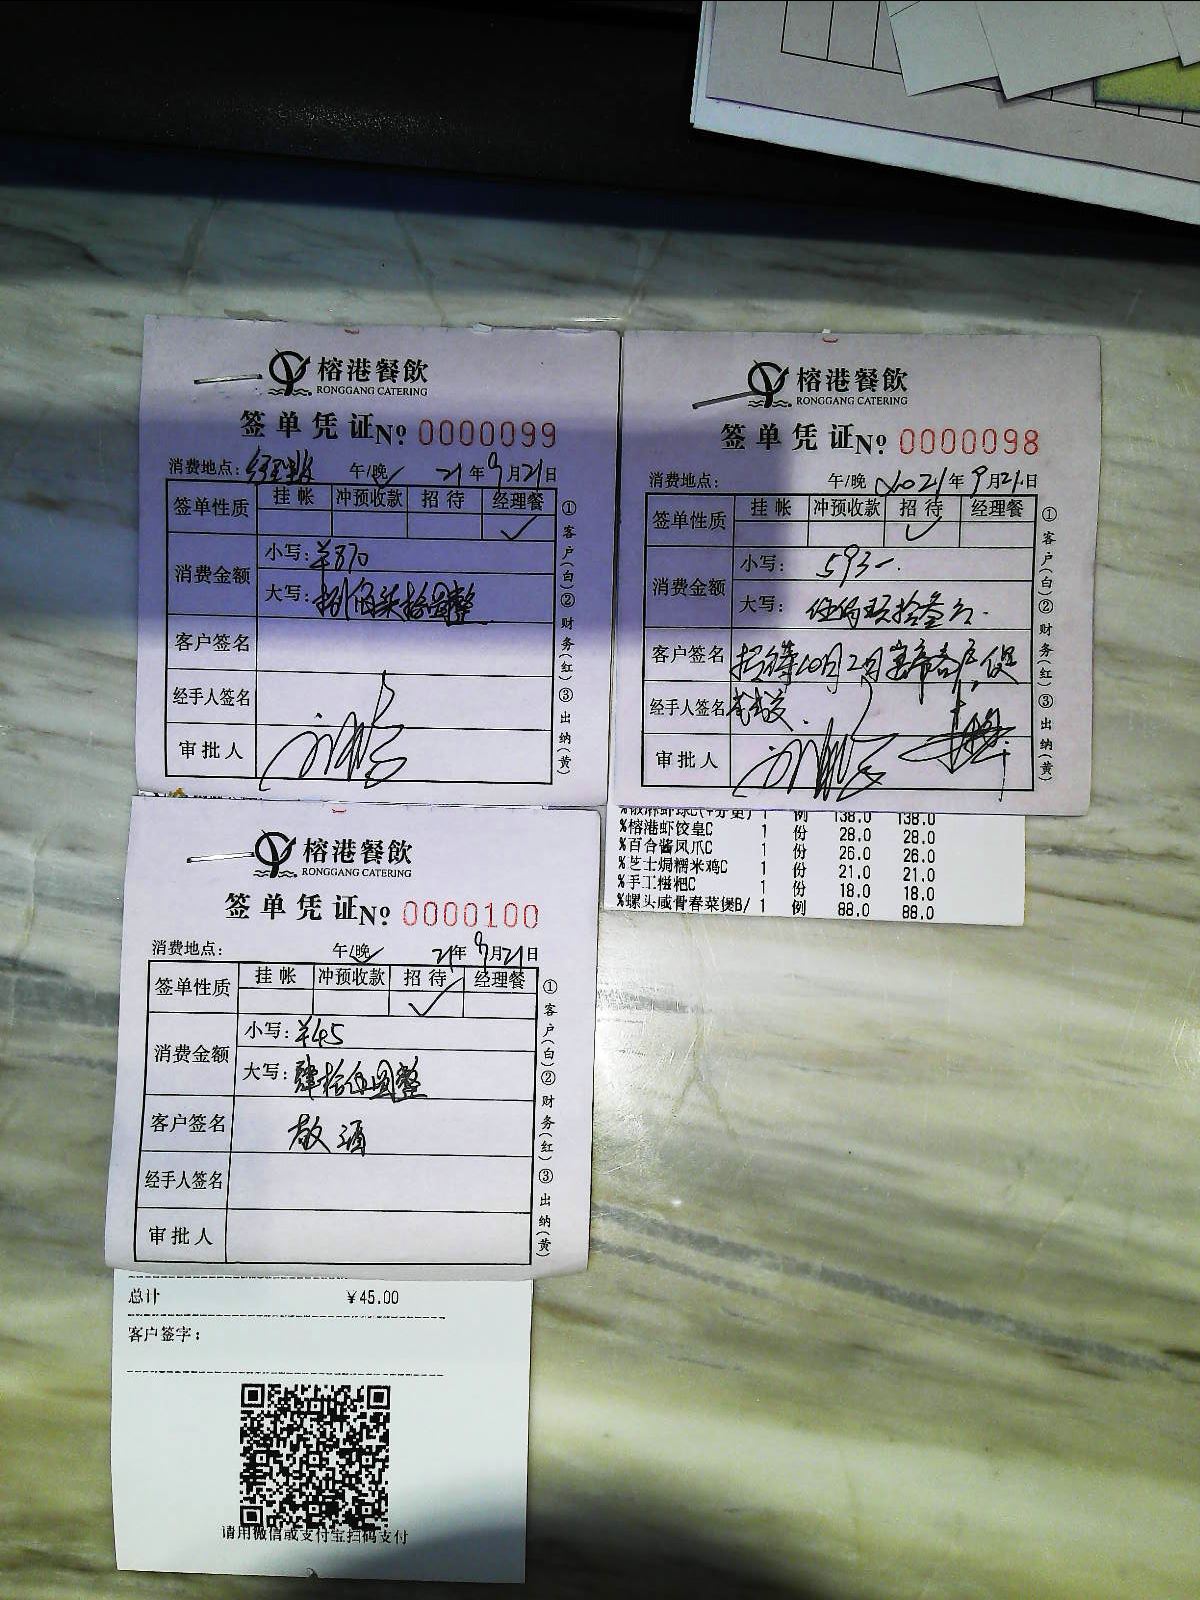 榕港餐飲
RONGGANG CATERING
签单凭证 No 0000099
消费地点: 经理班 午/晚 21年9月21日
签单性质 挂帐 冲预收款 招待 经理餐
✓
消费金额 小写: ¥870
大写: 捌佰柒拾圆整
客户签名
经手人签名
审批人
①客户(白)②财务(红)③出纳(黄)
榕港餐飲
RONGGANG CATERING
签单凭证 No 0000098
消费地点: 午/晚 2021年9月21日
签单性质 挂帐 冲预收款 招待 经理餐
✓
消费金额 小写: 593-.
大写: 伍佰玖拾叁元.
客户签名 招待10月2日
经手人签名
审批人
①客户(白)②财务(红)③出纳(黄)
1 例 138.0 138.0
%榕港虾饺皇C 1 份 28.0 28.0
%百合酱凤爪C 1 份 26.0 26.0
%芝士焗糯米鸡C 1 份 21.0 21.0
%手工糍粑C 1 份 18.0 18.0
%螺头咸骨春菜煲B/ 1 例 88.0 88.0
榕港餐飲
RONGGANG CATERING
签单凭证 No 0000100
消费地点: 午/晚 21年9月21日
签单性质 挂帐 冲预收款 招待 经理餐
✓
消费金额 小写: ¥45
大写: 肆拾伍圆整
客户签名 敬酒
经手人签名
审批人
①客户(白)②财务(红)③出纳(黄)
总计 ¥45.00
客户签字:
请用微信或支付宝扫码支付